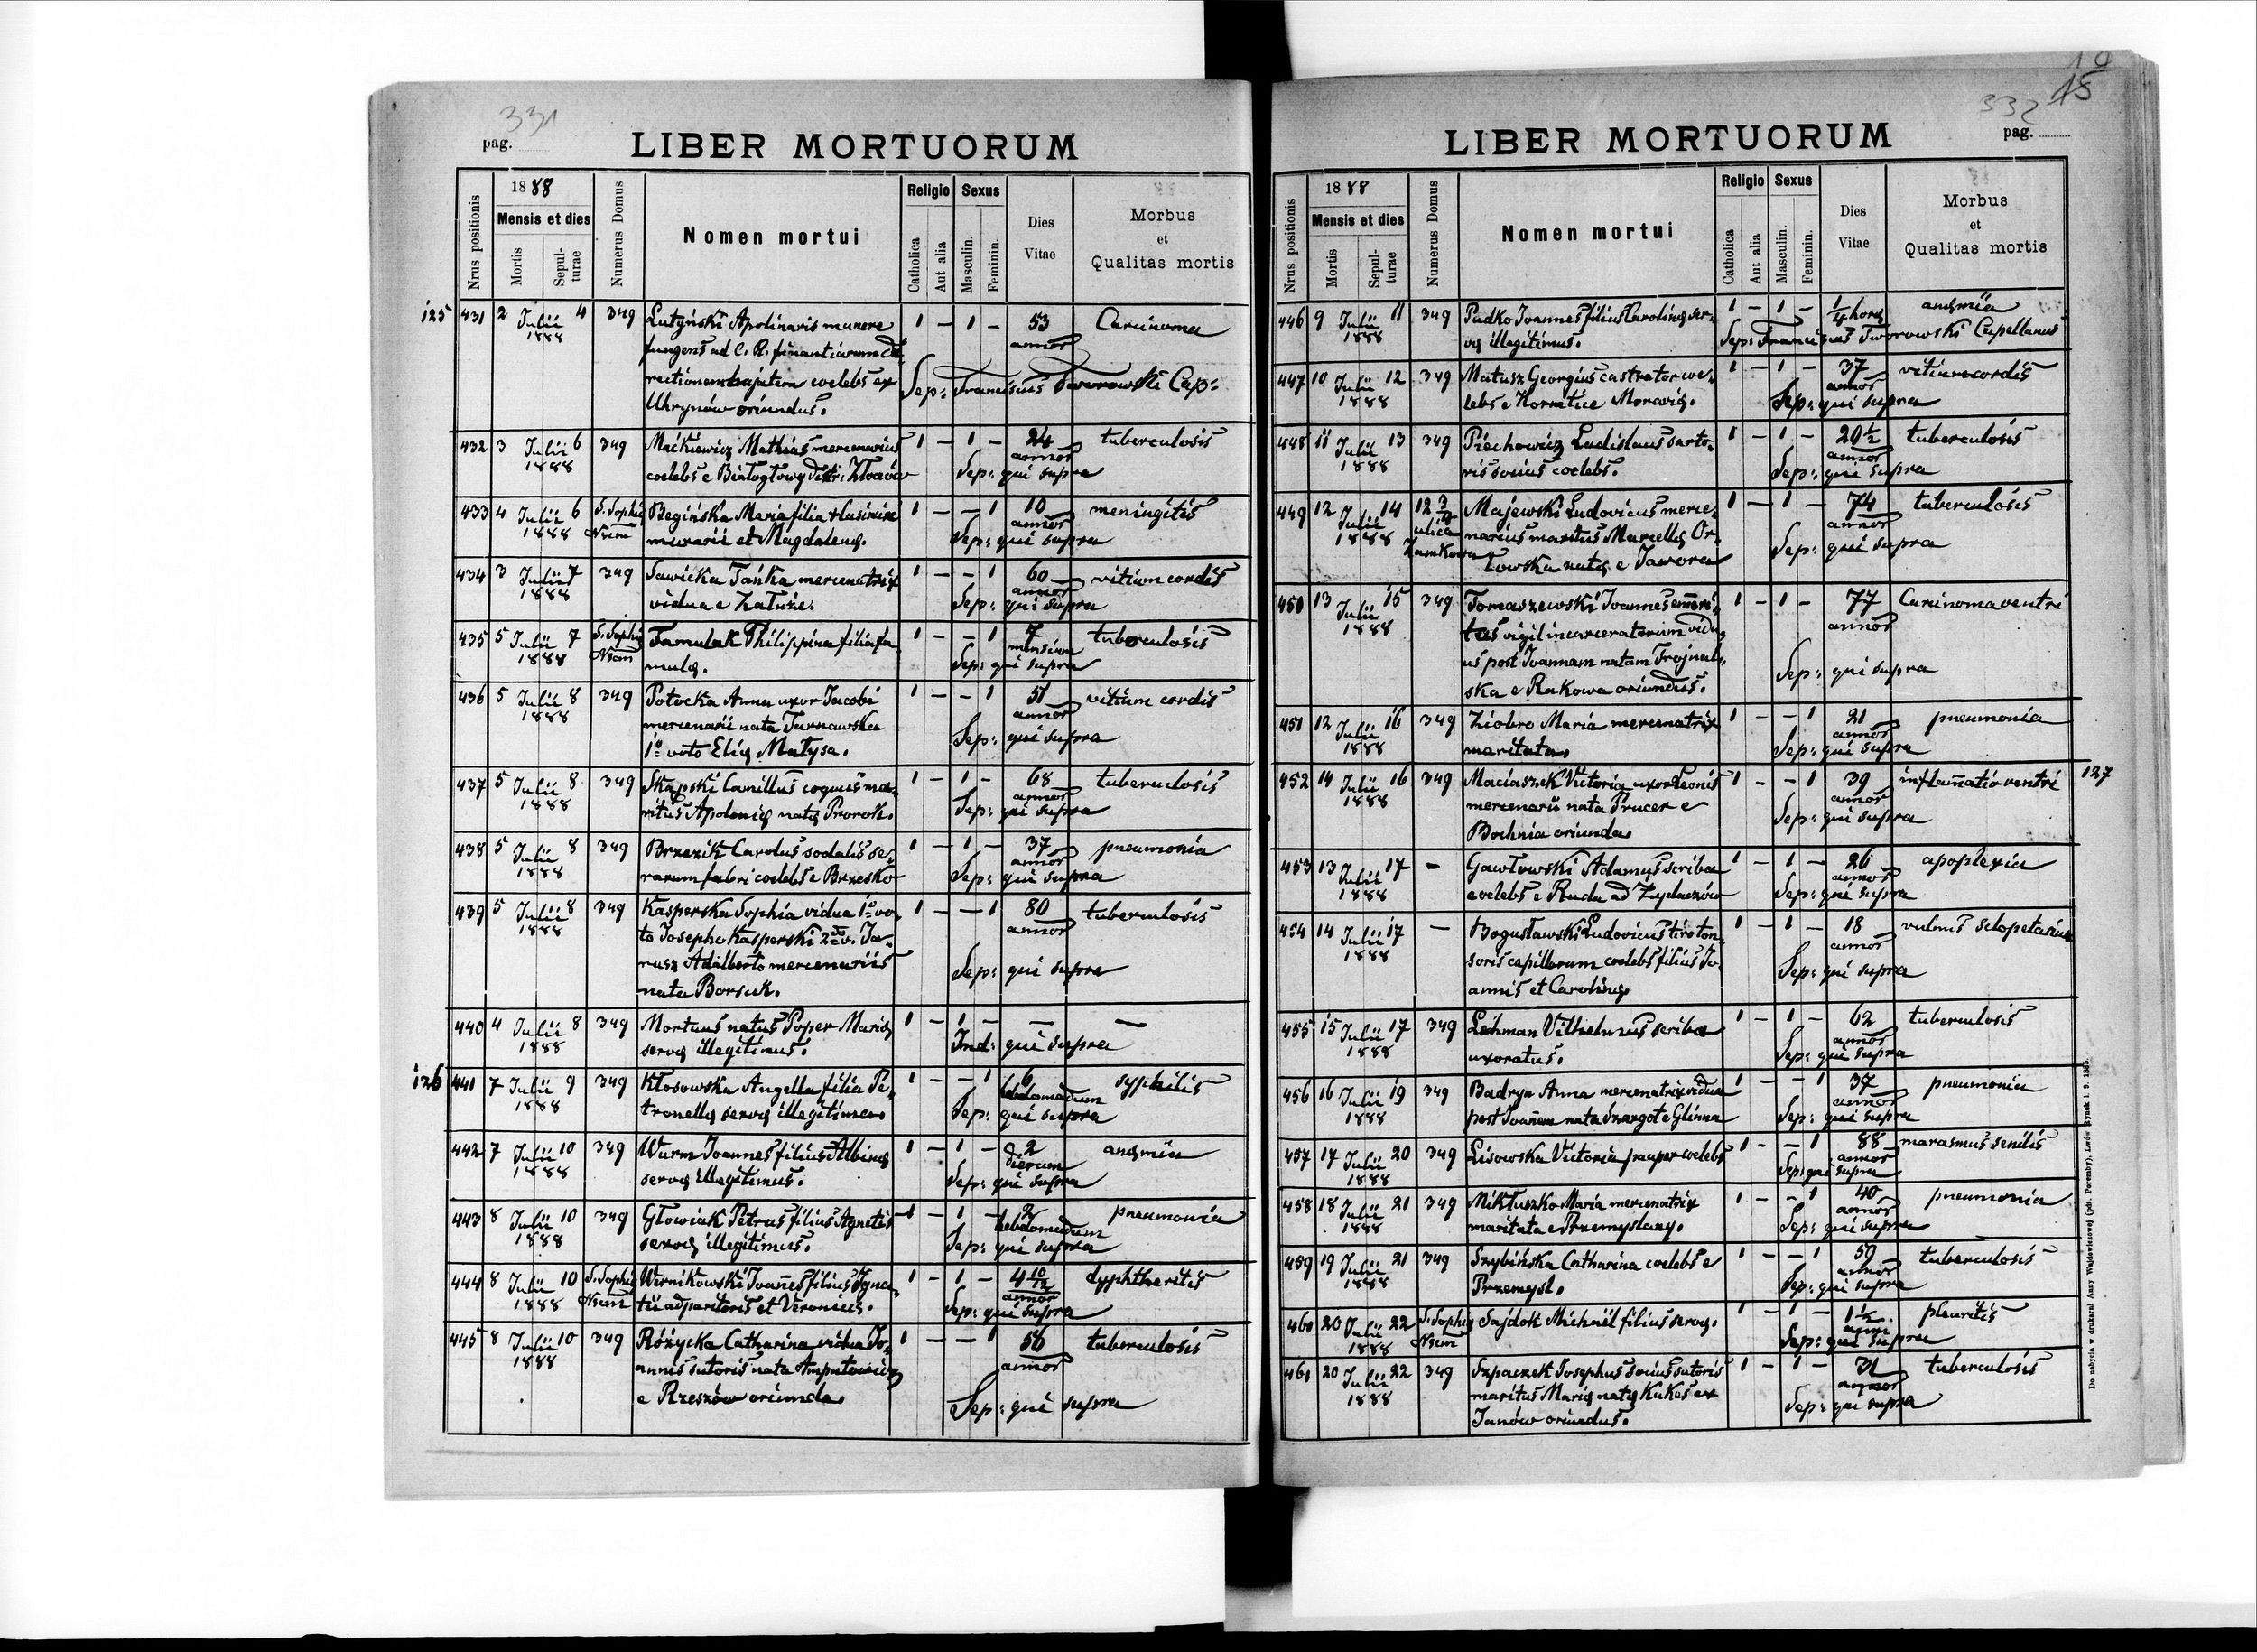 331
pag.
LIBER MORTUORUM
Nrus positionis
1888
Mensis et dies
Mortis
Sepul-
turae
Numerus Domus
Nomen mortui
Religio
Catholica
Aut alia
Sexus
Masculin.
Feminin.
Dies
Vitae
Morbus
et
Qualitas mortis
125 431 2 Julii 4 349 Lutyński Apolinaris munere 1 – 1 – 53 Carcinoma
1888 fungens ad C. R. finantiarum di- annor
rectionem coelebs ex Sep: Franciscus Tworowski Cap:
Uhrynów oriundus.
432 3 Julii 6 349 Maćkiewicz Mathias mercenarius 1 – 1 – 24 tuberculosis
1888 annor
coelebs e Białogłowy Distr: Złoczów Sep: qui supra
433 4 Julii 6 S. Sophie Begińska Maria filia Casimiri 1 – – 1 10 meningitis
1888 Nrum murarii et Magdalenę. annor
Sep: qui supra
434 3 Julii 7 349 Sawicka Tańka mercenatrix 1 – – 1 60 vitium cordis
1888 vidua e Załuże. annor
Sep: qui supra
435 5 Julii 7 S. Sophie Tamulak Philippina filia fa- 1 – – 1 7 tuberculosis
1888 Nrum mulę. mensium
Sep: qui supra
436 5 Julii 8 349 Potocka Anna uxor Jacobi 1 – – 1 51 vitium cordis
1888 mercenarii nata Tarnawska annor
1º voto Elię Matysa. Sep: qui supra
437 5 Julii 8 349 Skąpski Camillus coquus ma- 1 – 1 – 68 tuberculosis
1888 ritus Apolonię natę Prorok. annor
Sep: qui supra
438 5 Julii 8 349 Brzezik Carolus sodalis se- 1 – 1 – 37 pneumonia
1888 rarum fabri coelebs e Brzesko annor
Sep: qui supra
439 5 Julii 8 349 Kasperska Sophia vidua 1º vo- 1 – – 1 80 tuberculosis
1888 to Josepho Kasperski 2do v. Ja- annor
rusz Adalberto mercenariis Sep: qui supra
nata Borsuk.
440 4 Julii 8 349 Mortuus natus Poper Marię 1 – 1 – — –
1888 servę illegitimus. Ind: qui supra
126 441 7 Julii 9 349 Kłosowska Angella filia Pe- 1 – – 1 6 syphilis
1888 tronellę servę illegitima. hebdomadum
Sep: qui supra
442 7 Julii 10 349 Wurm Joannes filius Albinę 1 – 1 – 2 anęmia
1888 servę illegitimus. dierum
Sep: qui supra
443 8 Julii 10 349 Głowiak Petrus filius Agnetis 1 – 1 – 2 pneumonia
1888 servę illegitimus. hebdomadum
Sep: qui supra
444 8 Julii 10 S. Sophie Wirnikowski Joanes filius Igna- 1 – 1 – 4 10/12 dyphtheritis
1888 Nrum tii adparitoris et Veronicę. annor
Sep: qui supra
445 8 Julii 10 349 Różycka Catharina vidua Jo- 1 – – 1 56 tuberculosis
1888 annis sutoris nata Amputowicz annor
e Rzeszów oriunda. Sep: qui supra
10
15
332
pag.
LIBER MORTUORUM
Nrus positionis
1888
Mensis et dies
Mortis
Sepul-
turae
Numerus Domus
Nomen mortui
Religio
Catholica
Aut alia
Sexus
Masculin.
Feminin.
Dies
Vitae
Morbus
et
Qualitas mortis
446 9 Julii 11 349 Pudko Joannes filius Carolinę ser- 1 – 1 – 1/4 horę anęmia
1888 vę illegitimus. Sep: Franciscus Tworowski Capellanus
447 10 Julii 12 349 Matusz Georgius castrator coe- 1 – 1 – 37 vitium cordis
1888 lebs e Moravię. annor
Sep: qui supra
448 11 Julii 13 349 Piechowicz Ladislaus sarto- 1 – 1 – 20½ tuberculosis
1888 ris socius coelebs. annor
Sep: qui supra
449 12 Julii 14 12 Majewski Ludovicus merce- 1 – 1 – 74 tuberculosis
1888 ulica narius maritus Marcellę Or- annor
Zamkowa łowska natę e Jawora Sep: qui supra
450 13 Julii 15 349 Tomaszewski Joannes emeri- 1 – 1 – 77 Carcinoma ventri
1888 tus vigil incarceratorum vidu- annor
us post Joannam natam Trojnal-
ska e Rakowa oriundus. Sep: qui supra
451 12 Julii 16 349 Ziobro Maria mercenatrix 1 – – 1 21 pneumonia
1888 maritata. annor
Sep: qui supra
452 14 Julii 16 349 Maciaszek Victoria uxor Leonis 1 – – 1 39 inflamatio ventri 127
1888 mercenarii nata Prucer e annor
Bochnia oriunda. Sep: qui supra
453 13 Julii 17 – Gawłowski Adamus scriba 1 – 1 – 26 apoplexia
1888 coelebs e Ruda ad Żydaczów annor
Sep: qui supra
454 14 Julii 17 — Bogusławski Ludovicus tiro ton- 1 – 1 – 18 vulnus sclopetarium
1888 soris capillorum coelebs filius Jo- annor
annis et Carolinę. Sep: qui supra
455 15 Julii 17 349 Lehman Vilhelmus scriba 1 – 1 – 62 tuberculosis
1888 uxoratus. annor
Sep: qui supra
456 16 Julii 19 349 Badryn Anna mercenatrix vidua 1 – – 1 37 pneumonia
1888 post Joanem nata Szargot e Glinna annor
Sep: qui supra
457 17 Julii 20 349 Lisowska Victoria pauper coelebs 1 – – 1 88 marasmus senilis
1888 annor
Sep: qui supra
458 18 Julii 21 349 Mikłuszko Maria mercenatrix 1 – – 1 40 pneumonia
1888 maritata e Przemyslany. annor
Sep: qui supra
459 19 Julii 21 349 Szybińska Catharina coelebs e 1 – – 1 50 tuberculosis
1888 Przemysl. annor
Sep: qui supra
460 20 Julii 22 S. Sophie Sajdok Michaël filius servę. 1 – 1 – 1½ pleuritis
1888 Nrum anni
Sep: qui supra
461 20 Julii 22 349 Szpaczek Josephus socius sutoris 1 – 1 – 31 tuberculosis
1888 maritus Marię natę Kukes ex annor
Janów oriundus. Sep: qui supra
Do nabycia w drukarni Anny Wajdowiczowej (pds. Poremby), Lwów Rynek l. 9. 1885.